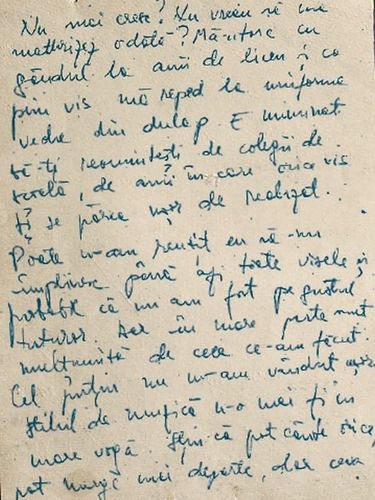 Nu mai cresc? Nu vreau să mă
maturizez odată? Mă-ntorc cu
gândul la anii de liceu și ca
prin vis mă reped la uniforma
veche din dulap. E minunat
să-ți reamintești de colegii de
școală, de anii în care orice vis
ți se părea ușor de realizat.
Poate n-am reușit eu să-mi
împlinesc până azi toate visele și
probabil că nu am fost pe gustul
tuturor. Dar în mare parte sunt
mulțumită de ceea ce-am făcut.
Cel puțin nu m-am vândut,
stilul de muzică n-o mai fi în
mare vogă. Știu că pot cânta orice,
pot merge mai departe, dar ceva